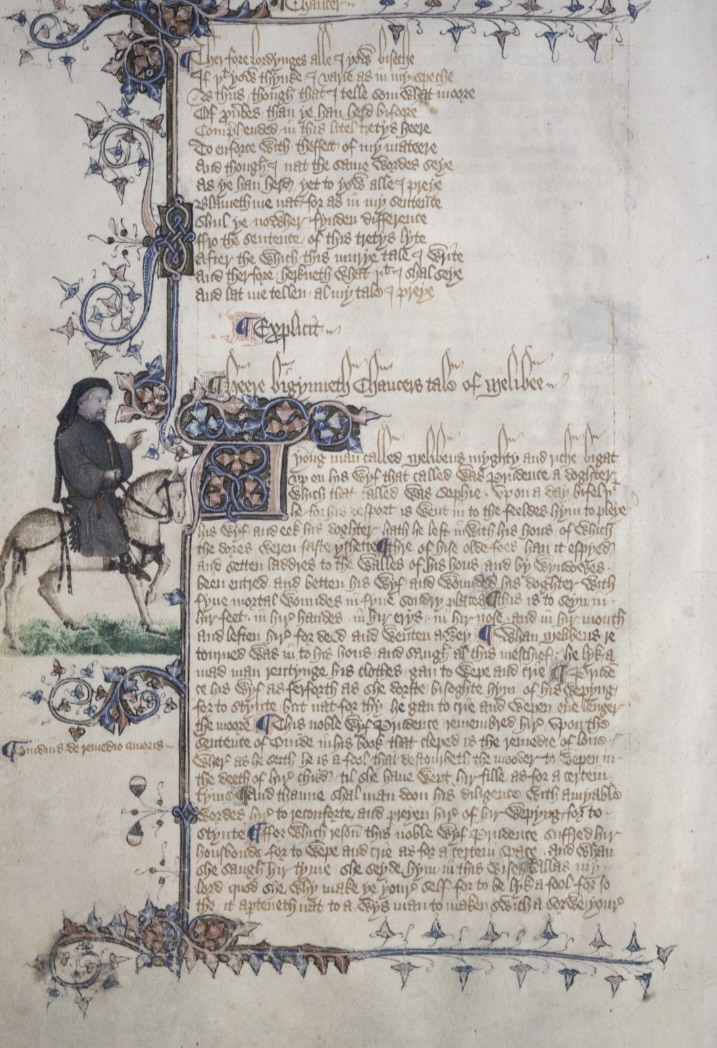 Chaucer
Therfore lordynges alle I yow biseche
If þt yow thynke I varie as in my speche
As thus though that I telle som what moore
Of prouerbes than ye han herd bifoore
Comprehended in this litel tretys heere
To enforce with theffect of my mateere
And though I nat the same wordes seye
As ye han herd yet to yow alle I preye
Blameth me nat for as in my sentence
Shul ye nowher fynden difference
ffro the sentence of this tretys lyte
After the which this murye tale I write
And therfore herkneth what þt I shal seye
And lat me tellen al my tale I preye
¶ Explicit
¶ Heere bigynneth Chaucers tale of Melibee
A yong man called Melibeus myghty and riche bigat
vp on his wyf that called was Prudence a doghter
which that called was Sophie Vpon a day bifel þt
he for his desport is went in to the feeldes hym to pleye
his wyf and eek his doghter hath he left inwith his hous of which
the dores weren faste yshette ¶ Thre of hise olde foes han it espyed
and setten laddres to the walles of his hous and by wyndowes
been entred and betten his wyf and wounded his doghter with
fyue mortal woundes in fyue sondry places ¶ This is to seyn in
hir feet in hir handes in hir erys in hir nose and in hir mouth
and leften hir for deed and wenten awey ¶ Whan Melibeus re
tourned was in to his hous and saugh al this meschief he lyk a
mad man rentynge his clothes gan to wepe and crie ¶ Pruden
ce his wyf as ferforth as she dorste bisoghte hym of his wepyng
for to stynte but nat for thy he gan to crie and wepen euere lenger
the moore ¶ This noble wyf Prudence remembred hir vpon the
sentence of Ouide in his book that cleped is the remedie of loue
wher as he seith he is a fool that destourbeth the mooder to wepen in
¶ Ouidius de remedio amoris
the deeth of hir child til she haue wept hir fille as for a certein
tyme ¶ And thanne shal man doon his diligence with amyable
wordes hir to reconforte and preyen hir of hir wepyng for to
stynte ¶ ffor which reson this noble wyf Prudence suffred hir
housbonde for to wepe and crie as for a certein space And whan
she saugh hir tyme she seyde hym in this wise ¶ Allas my
lord quod she why make ye youre self for to be lyk a fool for so
the it aperteneth nat to a wys man to maken swich a sorwe youre